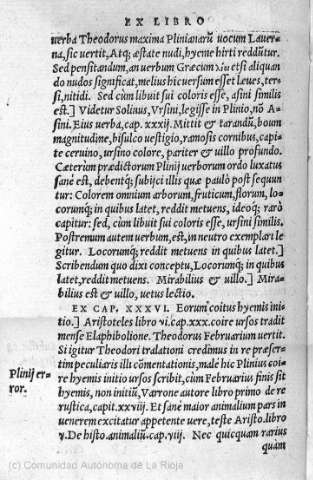 EX LIBRO
uerba Theodorus maxima Plinianarũ uocum Lauer-
na, sic uertit, Atq; æstate nudi, hyeme hirti reddũtur.
Sed pensitandum, an uerbum Græcum λῖοι etsi aliquan
do nudos significat, melius hic uersum esset Leues, ter-
si, nitidi. Sed cùm libuit sui coloris esse, asini similis
est.] Videtur Solinus, Vrsini, legisse in Plinio, nõ A-
sini. Eius uerba, cap. xxxij. Mittit & tarandũ, boum
magnitudine, bisulco uestigio, ramosis cornibus, capi-
te ceruino, ursino colore, pariter & uillo profundo.
Cæterùm prædictorum Plinij uerborum ordo luxatus
sanè est, debentq; subijci illis quæ paulò pòst sequun
tur: Colorem omnium arborum, fruticum, florum, lo-
corumq; in quibus latet, reddit metuens, ideoq; rarò
capitur: sed, cùm libuit sui coloris esse, ursini similis.
Postremum autem uerbum, est, in neutro exemplari le
gitur. Locorumq; reddit metuens in quibus latet.]
Scribendum quo dixi conceptu, Locorumq; in quibus
latet, reddit metuens. Mirabilius & uillo.] Mira-
bilius est & uillo, uetus lectio.
EX CAP. XXXVI. Eorum coitus hyemis ini-
tio.] Aristoteles libro vi. cap. xxx. coire ursos tradit
mense Elaphibolione. Theodorus Februarium uertit.
Si igitur Theodori tralationi credimus in re præser-
tim peculiaris illi cõmentationis, malè hic Plinius coi-
re hyemis initio ursos scribit, cùm Februarius finis sit
hyemis, non initiũ, Varrone autore libro primo de re
rustica, capit. xxviij. Et sanè maior animalium pars in
uenerem excitatur appetente uere, teste Aristo. libro
v. De histo. animaliũ. cap. viij. Nec quicquam rarius
quàm
Plinij er-
ror.
(c) Comunidad Autónoma de La Rioja